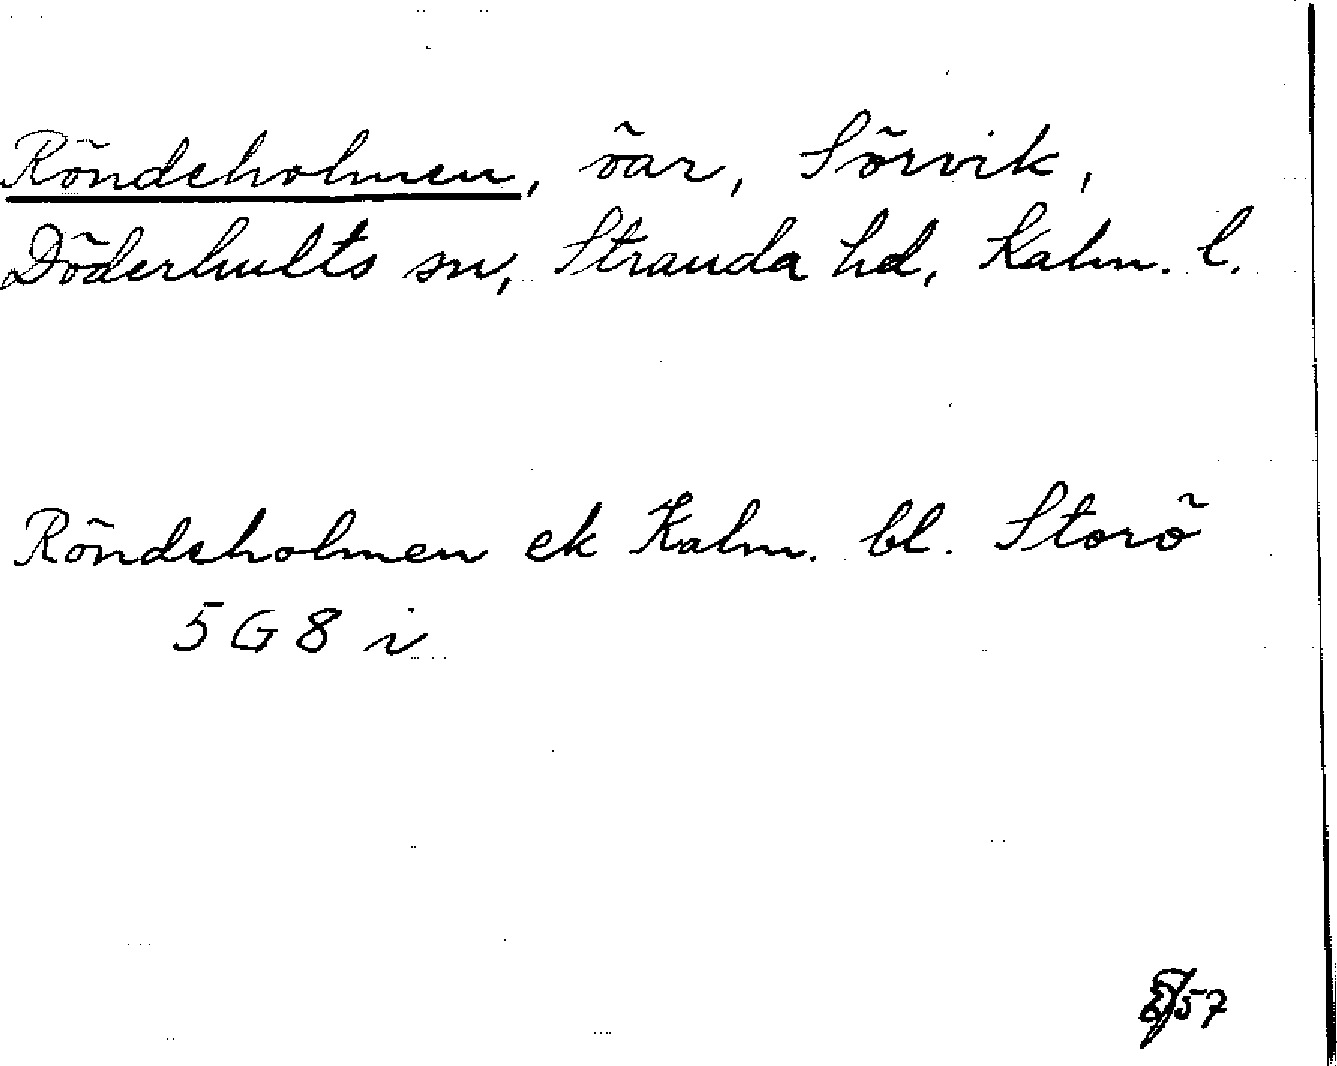 Röndeholmen, öar, Sörvik,
Döderhults sn, Stranda hd, Kalm. l.
Röndeholmen ek Kalm. bl. Storö
5 G 8 i
57